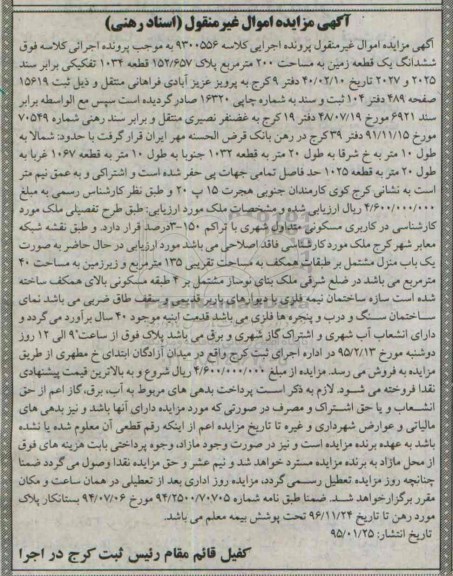 آگهی مزایده اموال غیرمنقول (اسناد رهنی)
آگهی مزایده اموال غیرمنقول پرونده اجرایی کلاسه ۹۳۰۰۵۵۶ به موجب پرونده اجرائی کلاسه فوق
ششدانگ یک قطعه زمین به مساحت ۲۰۰ مترمربع پلاک ۱۵۲/۶۵۷ قطعه ۱۰۳۴ تفکیکی برابر سند
۲۰۲۵ و ۲۰۲۷ تاریخ ۴۰/۰۲/۱۰ دفتر ۹ کرج به پرویز عزیز آبادی فراهانی منتقل و ذیل ثبت ۱۵۶۱۹
صفحه ۴۸۹ دفتر ۱۰۴ ثبت و سند به شماره چاپی ۱۶۳۲۰ صادرگردیده است سپس مع الواسطه برابر
سند ۶۹۲۱ مورخ ۴۸/۰۷/۱۹ دفتر ۱۹ کرج به غضنفر نصیری منتقل و برابر سند رهنی شماره ۷۰۵۴۹
مورخ ۹۱/۱۱/۱۵ دفتر ۳۹ کرج در رهن بانک قرض الحسنه مهر ایران قرارگرفت با حدود: شمالا به
طول ۱۰ متر به خ شرقا به طول ۲۰ متر به قطعه ۱۰۳۲ جنوبا به طول ۱۰ متر به قطعه ۱۰۶۷ غربا به
طول ۲۰ متر به قطعه ۱۰۲۵ حد فاصل تمامی جهات پی حفر شده است و اشتراکی و به عمق نیم متر
است به نشانی کرج کوی کارمندان جنوبی هجرت ۱۵ پ ۲۰ و طبق نظر کارشناس رسمی به مبلغ
۴/۶۰۰/۰۰۰/۰۰۰ ریال ارزیابی شده و مشخصات ملک مورد ارزیابی: طبق طرح تفصیلی ملک مورد
کارشناسی در کاربری مسکونی متداول شهری با تراکم ۱۵۰-۳درصد قرار دارد. و طبق نقشه شبکه
معابر شهر کرج ملک مورد کارشناسی فاقد اصلاحی می باشد مورد ارزیابی در حال حاضر به صورت
یک باب منزل مشتمل بر طبقات همکف به مساحت تقریبی ۱۳۵ مترمربع و زیرزمین به مساحت ۴۰
مترمربع می باشد در ضلع شرقی ملک بنای نوساز مشتمل بر ۴ طبقه مسکونی بالای همکف ساخته
شده است سازه ساختمان نیمه فلزی با دیوارهای باربر قدیمی و سقف طاق ضربی می باشد نمای
ساختمان سنگ و درب و پنجره ها فلزی می باشد قدمت ابنیه موجود ۴۰ سال برآورد می گردد و
دارای انشعاب آب شهری و اشتراک گاز شهری و برق می باشد پلاک فوق از ساعت ۹ الی ۱۲ روز
دوشنبه مورخ ۹۵/۲/۱۳ در اداره اجرای ثبت کرج واقع در میدان آزادگان ابتدای خ مطهری از طریق
مزایده به فروش می رسد. مزایده از مبلغ ۴/۶۰۰/۰۰۰/۰۰۰ ریال شروع و به بالاترین قیمت پیشنهادی
نقدا فروخته می شود. لازم به ذکر است پرداخت بدهی های مربوط به آب، برق، گاز اعم از حق
انشعاب و یا حق اشتراک و مصرف در صورتی که مورد مزایده دارای آنها باشد و نیز بدهی های
مالیاتی و عوارض شهرداری و غیره تا تاریخ مزایده اعم از اینکه رقم قطعی آن معلوم شده یا نشده
باشد به عهده برنده مزایده است و نیز در صورت وجود مازاد، وجوه پرداختی بابت هزینه های فوق
از محل مازاد به برنده مزایده مسترد خواهد شد و نیم عشر و حق مزایده نقدا وصول می گردد ضمنا
چنانچه روز مزایده تعطیل رسمی گردد، مزایده روز اداری بعد از تعطیلی در همان ساعت و مکان
مقرر برگزارخواهد شد. ضمنا طبق نامه شماره ۹۴/۲۵۰۰/۷۰۷۰۵ مورخ ۹۴/۰۷/۰۶ بستانکار پلاک
مورد رهن تا تاریخ ۹۶/۱۱/۲۴ تحت پوشش بیمه معلم می باشد.
تاریخ انتشار: ۹۵/۰۱/۲۵
کفیل قائم مقام رئیس ثبت کرج در اجرا